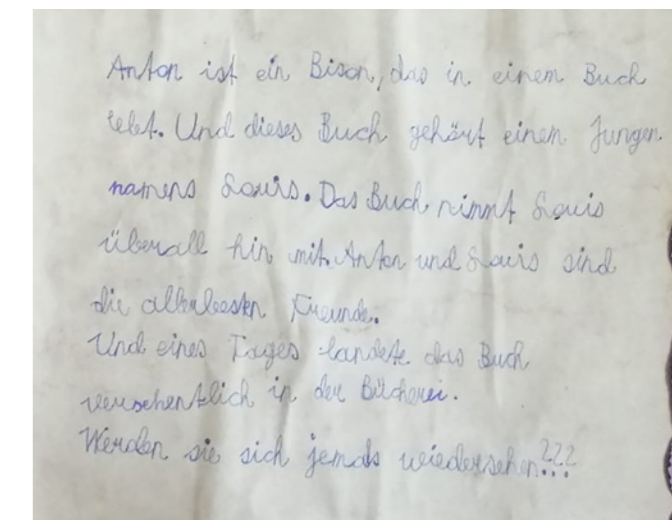 Anton ist ein Bison, das in einem Buch
lebt. Und dieses Buch gehört einem Jungen
namens Louis. Das Buch nimmt Louis
überall hin mit. Anton und Louis sind
die allerbesten Freunde.
Und eines Tages landete das Buch
versehentlich in der Bücherei.
Werden sie sich jemals wiedersehen???